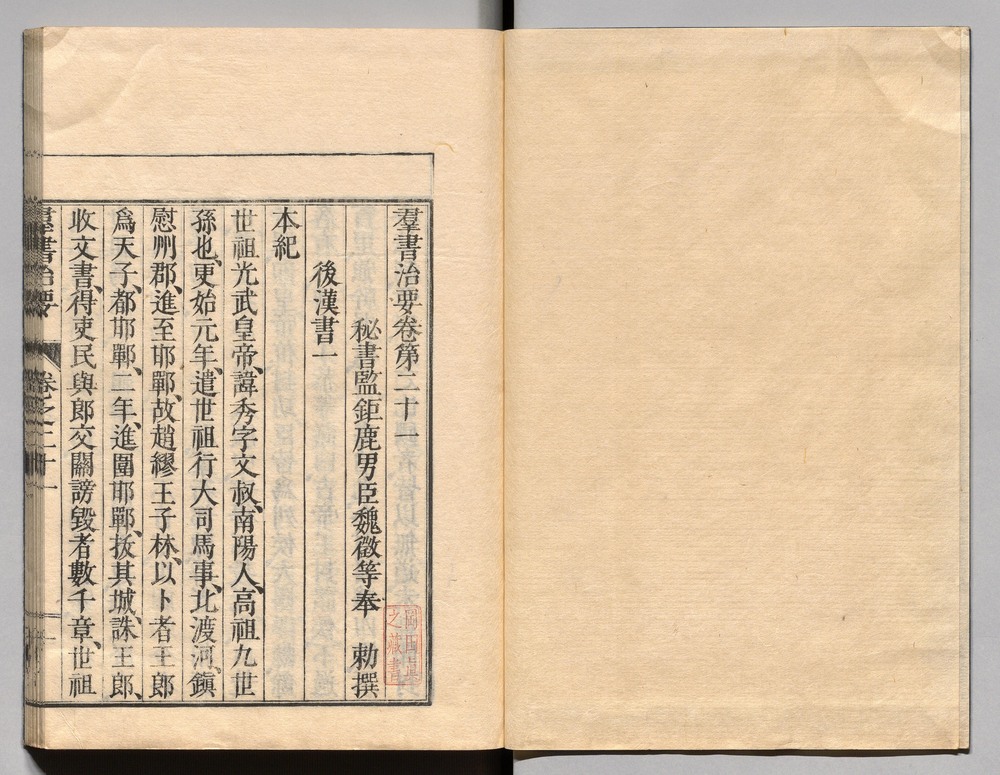 羣書治要卷第二十一
秘書監鉅鹿男臣魏徵等奉　勅撰
後漢書一
本紀
世祖光武皇帝、諱秀字文叔、南陽人、高祖九世
孫也、更始元年、遣世祖行大司馬事、北渡河、鎭
慰州郡、進至邯鄲、故趙繆王子林、以卜者王郎
爲天子、都邯鄲、二年、進圍邯鄲、拔其城、誅王郎、
收文書、得吏民與郎交關謗毀者數千章、世祖
羣書治要　卷之二十一
之藏書